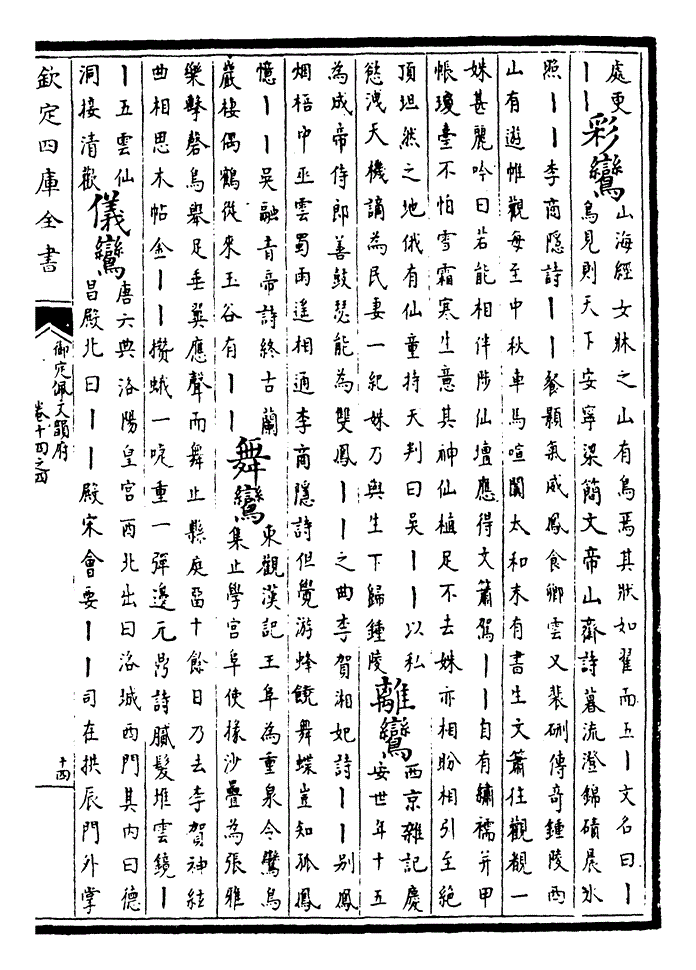 處更
丨丨
彩鸞
山海經女牀之山有鳥焉其狀如翟而五丨文名曰丨
鳥見則天下安寧梁簡文帝山齋詩暮流澄錦磧晨氷
照丨丨李商隱詩丨丨餐顥氣威鳳食卿雲又裴鉶傳奇鍾陵西
山有遊帷觀每至中秋車馬喧闐太和末有書生文簫往觀覩一
姝甚麗吟曰若能相伴陟仙壇應得文簫駕丨丨自有繡襦并甲
帳瓊臺不怕雪霜寒生意其神仙植足不去姝亦相盼相引至絶
頂坦然之地俄有仙童持天判曰吳丨丨以私
慾洩天機謫為民妻一紀姝乃與生下歸鍾陵
離鸞
西京雜記慶
安世年十五
為成帝侍郎善鼓瑟能為雙鳳丨丨之曲李賀湘妃詩丨丨别鳳
烟梧中巫雲蜀雨遥相通李商隱詩但覺游蜂饒舞蝶豈知孤鳳
憶丨丨吳融青帝詩終古蘭
巖棲偶鶴從來玉谷有丨丨
舞鸞
東觀漢記王阜為重泉令鸞鳥
集止學宫阜使掾沙疊為張雅
樂擊磬鳥舉足垂翼應聲而舞止縣庭畱十餘日乃去李賀神絃
曲相思木帖金丨丨攢蛾一啑重一彈邊元鼎詩膩髮堆雲鏡丨
丨五雲仙
洞接清歡
儀鸞
唐六典洛陽皇宫西北出曰洛城西門其内曰德
昌殿北曰丨丨殿宋會要丨丨司在拱辰門外掌
欽定四庫全書
御定佩文韻府
卷十四之四
十四